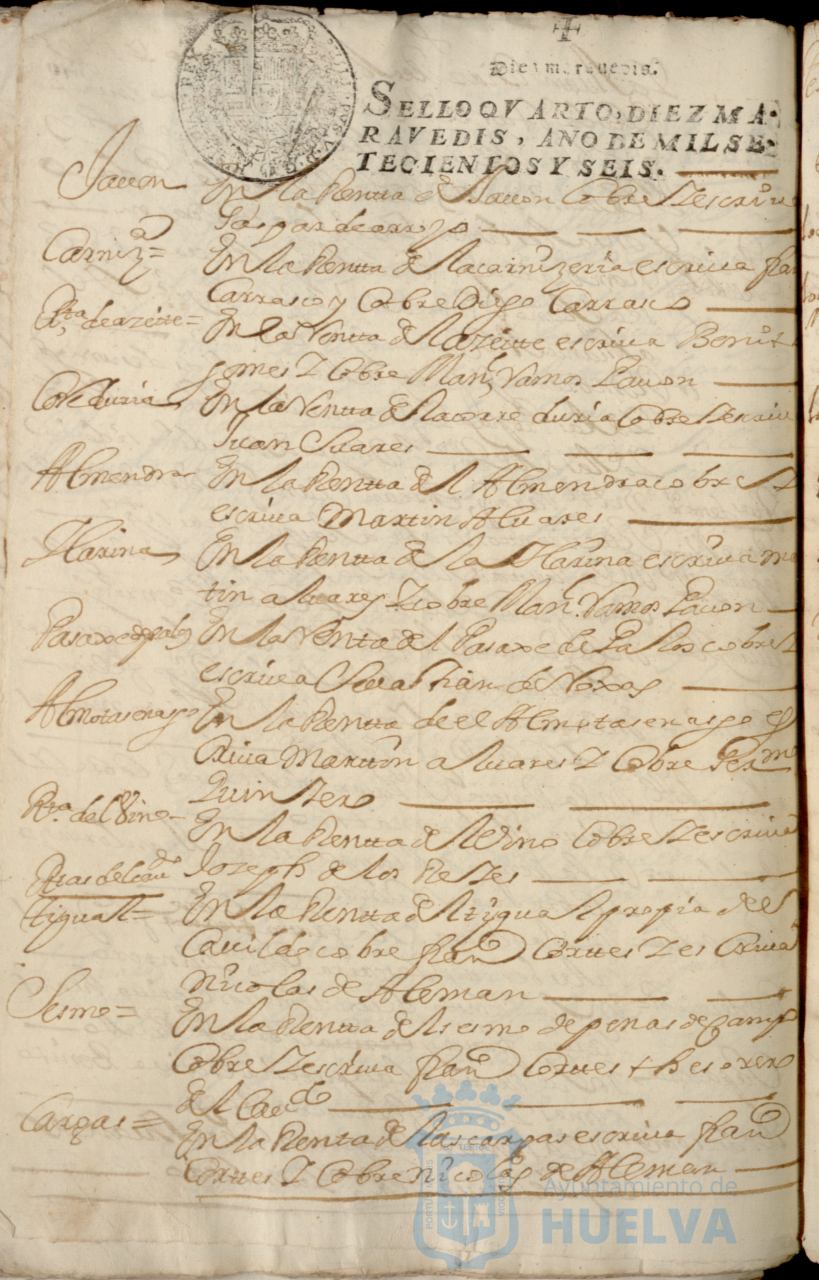 Diez maravedis.
SELLO QVARTO, DIEZ MA-
RAVEDIS, AÑO DE MIL SE-
TECIENTOS Y SEIS.
Jauon En la Rentta de Jauon Cobre Y escriue
Gaspar de arroyo
Carniza= En la Rentta de la carnizeria escriua fran
Carrasco y Cobre Diego Carrasco
Rta de azeitte= En la Rentta del azeitte escriua Benit
gomes Y Cobre Manl Ramos Pauon
Correduria En la Rentta de la corre duria Cobre Y escriu
Juan Suares
Almendra En la Rentta del Almendra cobre Y
escriua Martin Aluares
Harina En la Rentta de la Harina escriua mar
tin aluares Y cobre Manl. Ramos Pauon
Pasaxe de palos En la Rentta del Pasaxe de Palos cobre Y
escriua Seuasthian de
Almotasenasgo En la Rentta de el Almotasenasgo es
criua Martin aluares Y Cobre
Quintero
Rta. del Vino En la Rentta del Vino Cobre Y escriua
Joseph de los Reyes
Rtas del caudo
tigual= En la Rentta del tigual propia del
Cauildo cobre fran Corttes Y es Criua
Nicolas de Aleman
Sesmo= En la Rentta del sesmo de penas de Camp
Cobre Y escriua fran Corttes thesorero
del Cauo
Cargas= En la Rentta de las cargas escriua fran
Corttes Y Cobre Nicolas de Aleman
Ayuntamiento de
HUELVA